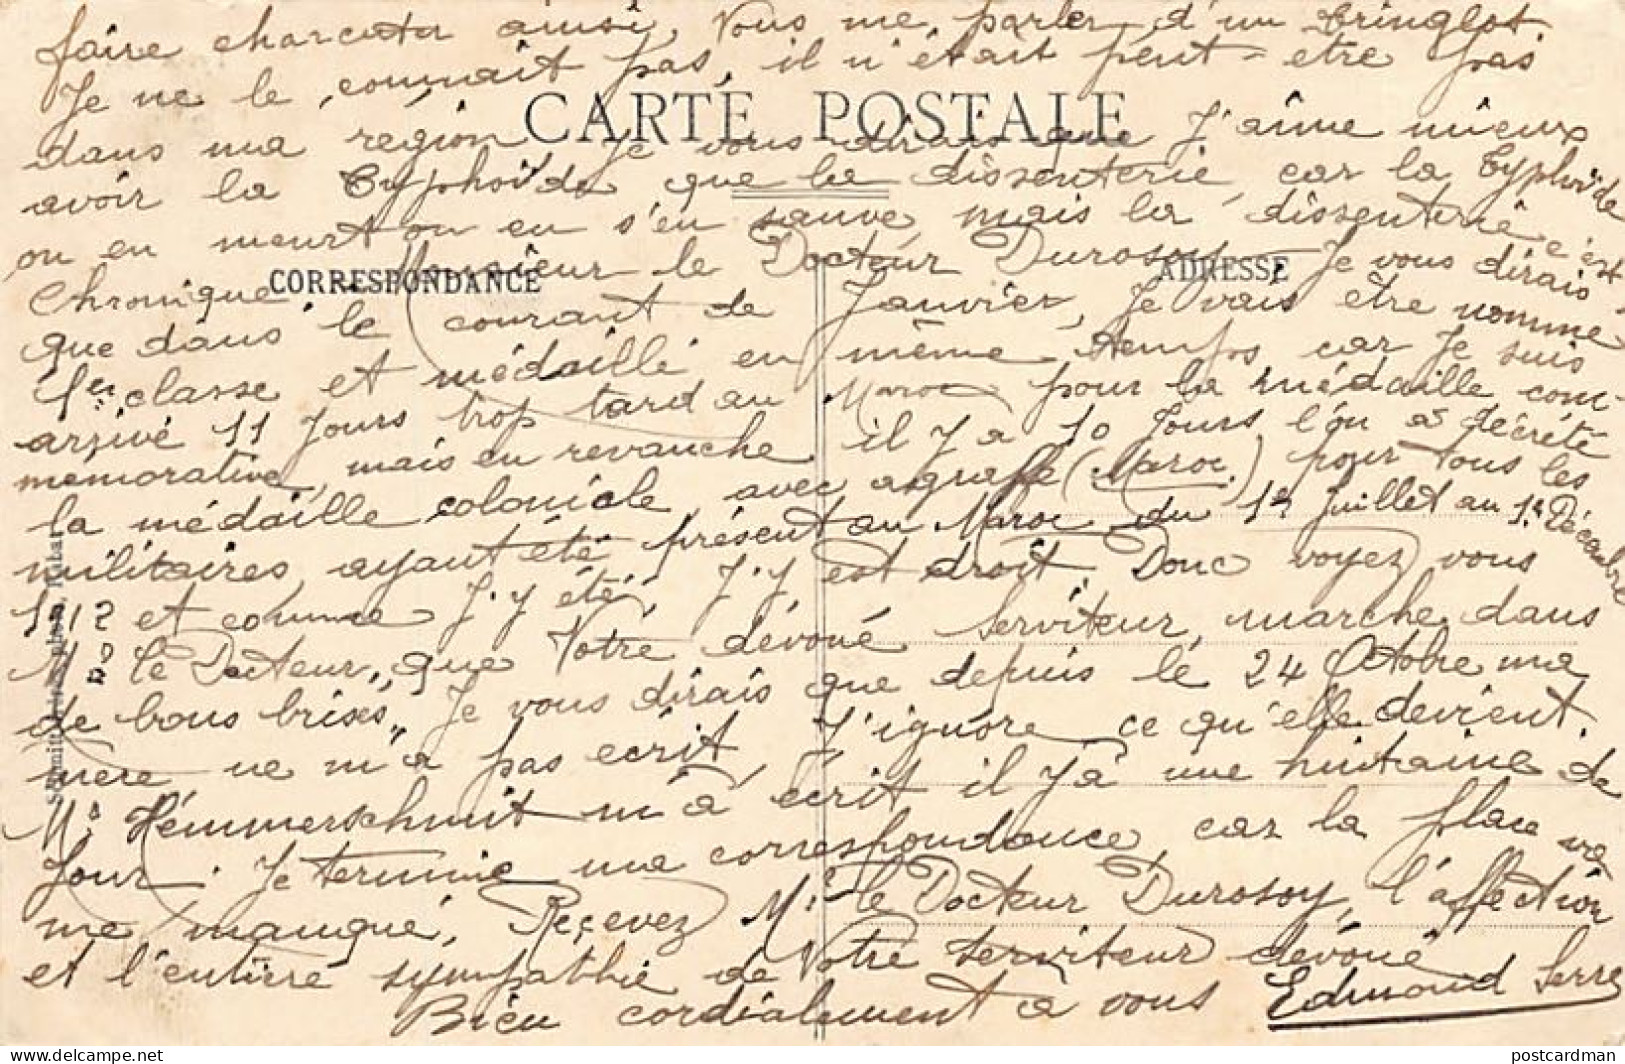 faire charcuter ainsi, Vous me parler d'un Cringlot.
Je ne le connait pas, il n'était peut-etre pas
CARTE POSTALE
dans ma région Je vous dirais que J'aîme mieux
avoir la Typhoïde que la dissenterie, car la Typhoïde
ou en meurt ou en s'en sauve, mais la dissenterie c'est
CORRESPONDANCE
ADRESSE
Chronique. Monsieur le Docteur Durosoy, Je vous dirais
que dans le courant de Janvier, Je vais être nommé
1er classe et médaillé en même temps car Je suis
arrivé 11 Jours trop tard au Maroc pour la médaille com-
mémorative, mais en revanche il y a 10 Jours l'on a décrété
la médaille coloniale avec agraffe (Maroc.) pour tous les
militaires, ayant été présent au Maroc du 1er Juillet au 1er Décembre
1912 et comme J'y été, J'y est droit. Donc voyez vous
Mr le Docteur, que Votre dévoué serviteur, marche dans
de bous brisés,, Je vous dirais que depuis le 24 Octobre ma
mere ne m'a pas ecrit, J'ignore ce qu'elle devient.
Mr Hémmerschmit m'a écrit il y a une huitaine de
Jour. Je termine ma correspondance, car la place va
me manqué, Reçevez Mr le Docteur Durosoy, l'affection
et l'entière sympathie de Votre serviteur dévoué
Bien cordialement à vous Edmond Serre
Schmitt
Rabat
postcardman